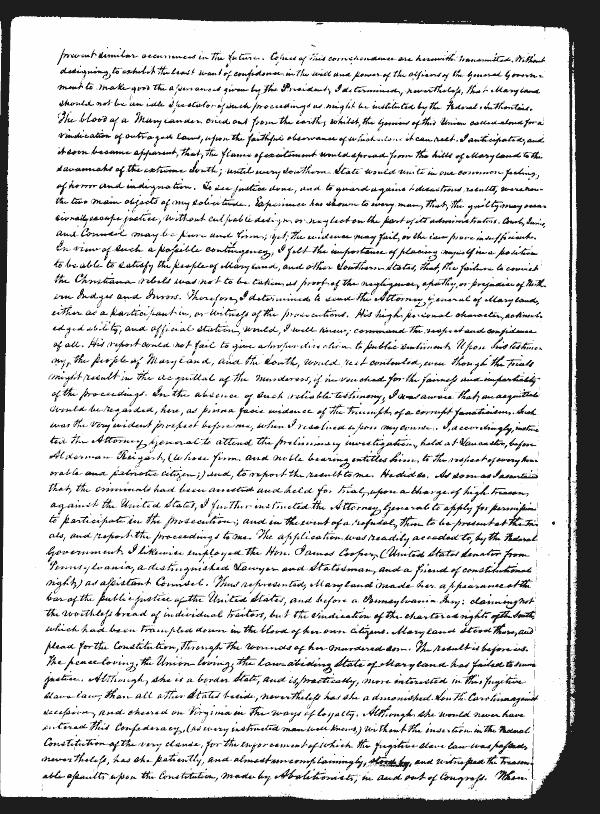 prevent similar occurrences in the future. Copies of this correspondence are herewith transmitted. Without
designing, to exhibit the least want of confidence in the will and power of the officers of the General Govern-
ment to make good the assurances given by the President, I determined, nevertheless, that Maryland
should not be an idle spectator of such proceedings as might be instituted by the Federal Authorities.
The blood of a Marylander cried out from the earth; whilst, the Genius of this Union called aloud for a
vindication of outraged laws, upon the faithful observance of which alone it can rest. I anticipated, and
it soon became apparent, that, the flame of excitement would spread from the hills of Maryland to the
savannahs of the extreme South; until every Southern State would unite in one common feeling,
of horror and indignation. To see justice done, and to guard against disastrous results, were now
the two main objects of my solicitude. Experience has shown to every man, that, the guilty may occa-
sionally escape justice, without culpable design, or neglect on the part of its administrators. Courts, Juries,
and Counsel may be pure and firm; yet, the evidence may fail, or the law prove insufficient.
In view of such a possible contingency, I felt the importance of placing myself in a position
to be able to satisfy the people of Maryland, and other Southern States, that, the failure to convict
the Christiana rebels was not to be taken as proof of the negligence, apathy, or prejudice of North-
ern Judges and Jurors. Therefore, I determined to send the Attorney General of Maryland,
either as a participant in, or witness of the prosecutions. His high personal character, acknowl-
edged ability, and official station, would, I well knew, command the respect and confidence
of all. His report could not fail to give a proper direction to public sentiment. Upon his testimo-
ny, the people of Maryland, and the South, would rest contented, even though the trials
might result in the acquittal of the murderers, if he vouched for the fairness and impartiality
of the proceedings. In the absence of such reliable testimony, I was aware that, an acquittal
would be regarded, here, as prima facie evidence of the triumph of a corrupt fanaticism. Such
was the very evident prospect before me, when I resolved upon my course. I, accordingly, instruc-
ted the Attorney General to attend the preliminary investigation, held at Lancaster, before
Alderman Reigart, (whose firm and noble bearing entitles him, to the respect of every hon-
orable and patriotic citizen;) and, to report the result to me. He did so. As soon as I ascertained
that, the criminals had been arrested and held for trial, upon a charge of high treason,
against the United States, I further instructed the Attorney General to apply for permission
to participate in the prosecution; and in the event of a refusal, then to be present at the tri-
als, and report the proceedings to me. The application was readily acceded to, by the Federal
Government. I likewise employed the Hon. James Cooper, (United States Senator from
Pennsylvania, a distinguished Lawyer and Statesman, and a friend of constitutional
rights,) as assistant Counsel. Thus represented, Maryland made her appearance at the
bar of the public justice of the United States, and before a Pennsylvania Jury: claiming not
the worthless blood of individual traitors, but the vindication of the chartered rights of the South,
which had been trampled down in the blood of her own Citizens. Maryland stood there, and
plead for the Constitution, through the wounds of her murdered son. The result is before us.
The peace loving; the Union loving; the law abiding State of Maryland has failed to secure
justice. Although, she is a border State, and is, practically, more interested in this fugitive
slave law, than all other States beside, nevertheless has she admonished South Carolina against
secession, and cheered on Virginia in the ways of loyalty. Although she would never have
entered this Confederacy, (as every instructed man well knows,) without the insertion in the Federal
Constitution of the very clause, for the enforcement of which the fugitive slave law was passed,
nevertheless, has she patiently, and almost uncomplainingly, stood by, and witnessed the treason-
able assaults upon the Constitution, made by Abolitionists, in and out of Congress. When